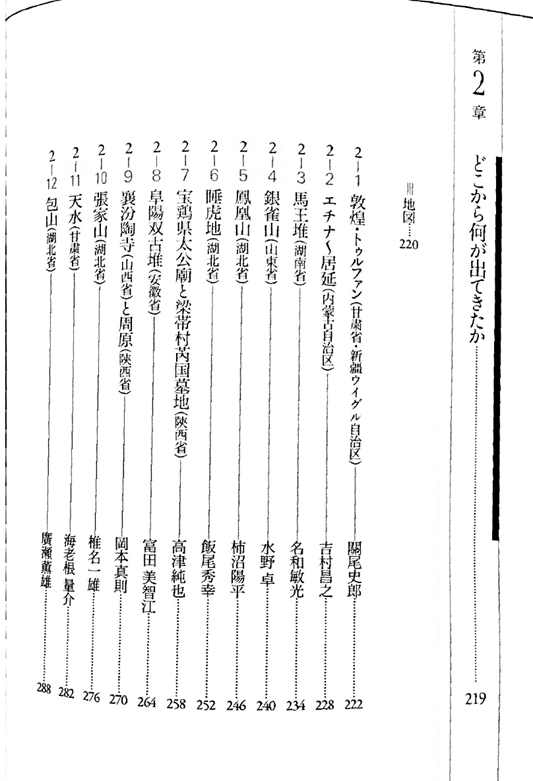 第2章 どこから何が出てきたか……219
地図……220
2−1 敦煌・トゥルファン(甘粛省・新疆ウイグル自治区)――關尾史郎……222
2−2 エチナ〜居延(内蒙古自治区)――吉村昌之……228
2−3 馬王堆(湖南省)――名和敏光……234
2−4 銀雀山(山東省)――水野 卓……240
2−5 鳳凰山(湖北省)――柿沼陽平……246
2−6 睡虎地(湖北省)――飯尾秀幸……252
2−7 宝鶏県太公廟と梁帯村芮国墓地(陝西省)――高津純也……258
2−8 阜陽双古堆(安徽省)――富田 美智江……264
2−9 襄汾陶寺(山西省)と周原(陝西省)――岡本真則……270
2−10 張家山(湖北省)――椎名一雄……276
2−11 天水(甘粛省)――海老根 量介……282
2−12 包山(湖北省)――廣瀬薫雄……288